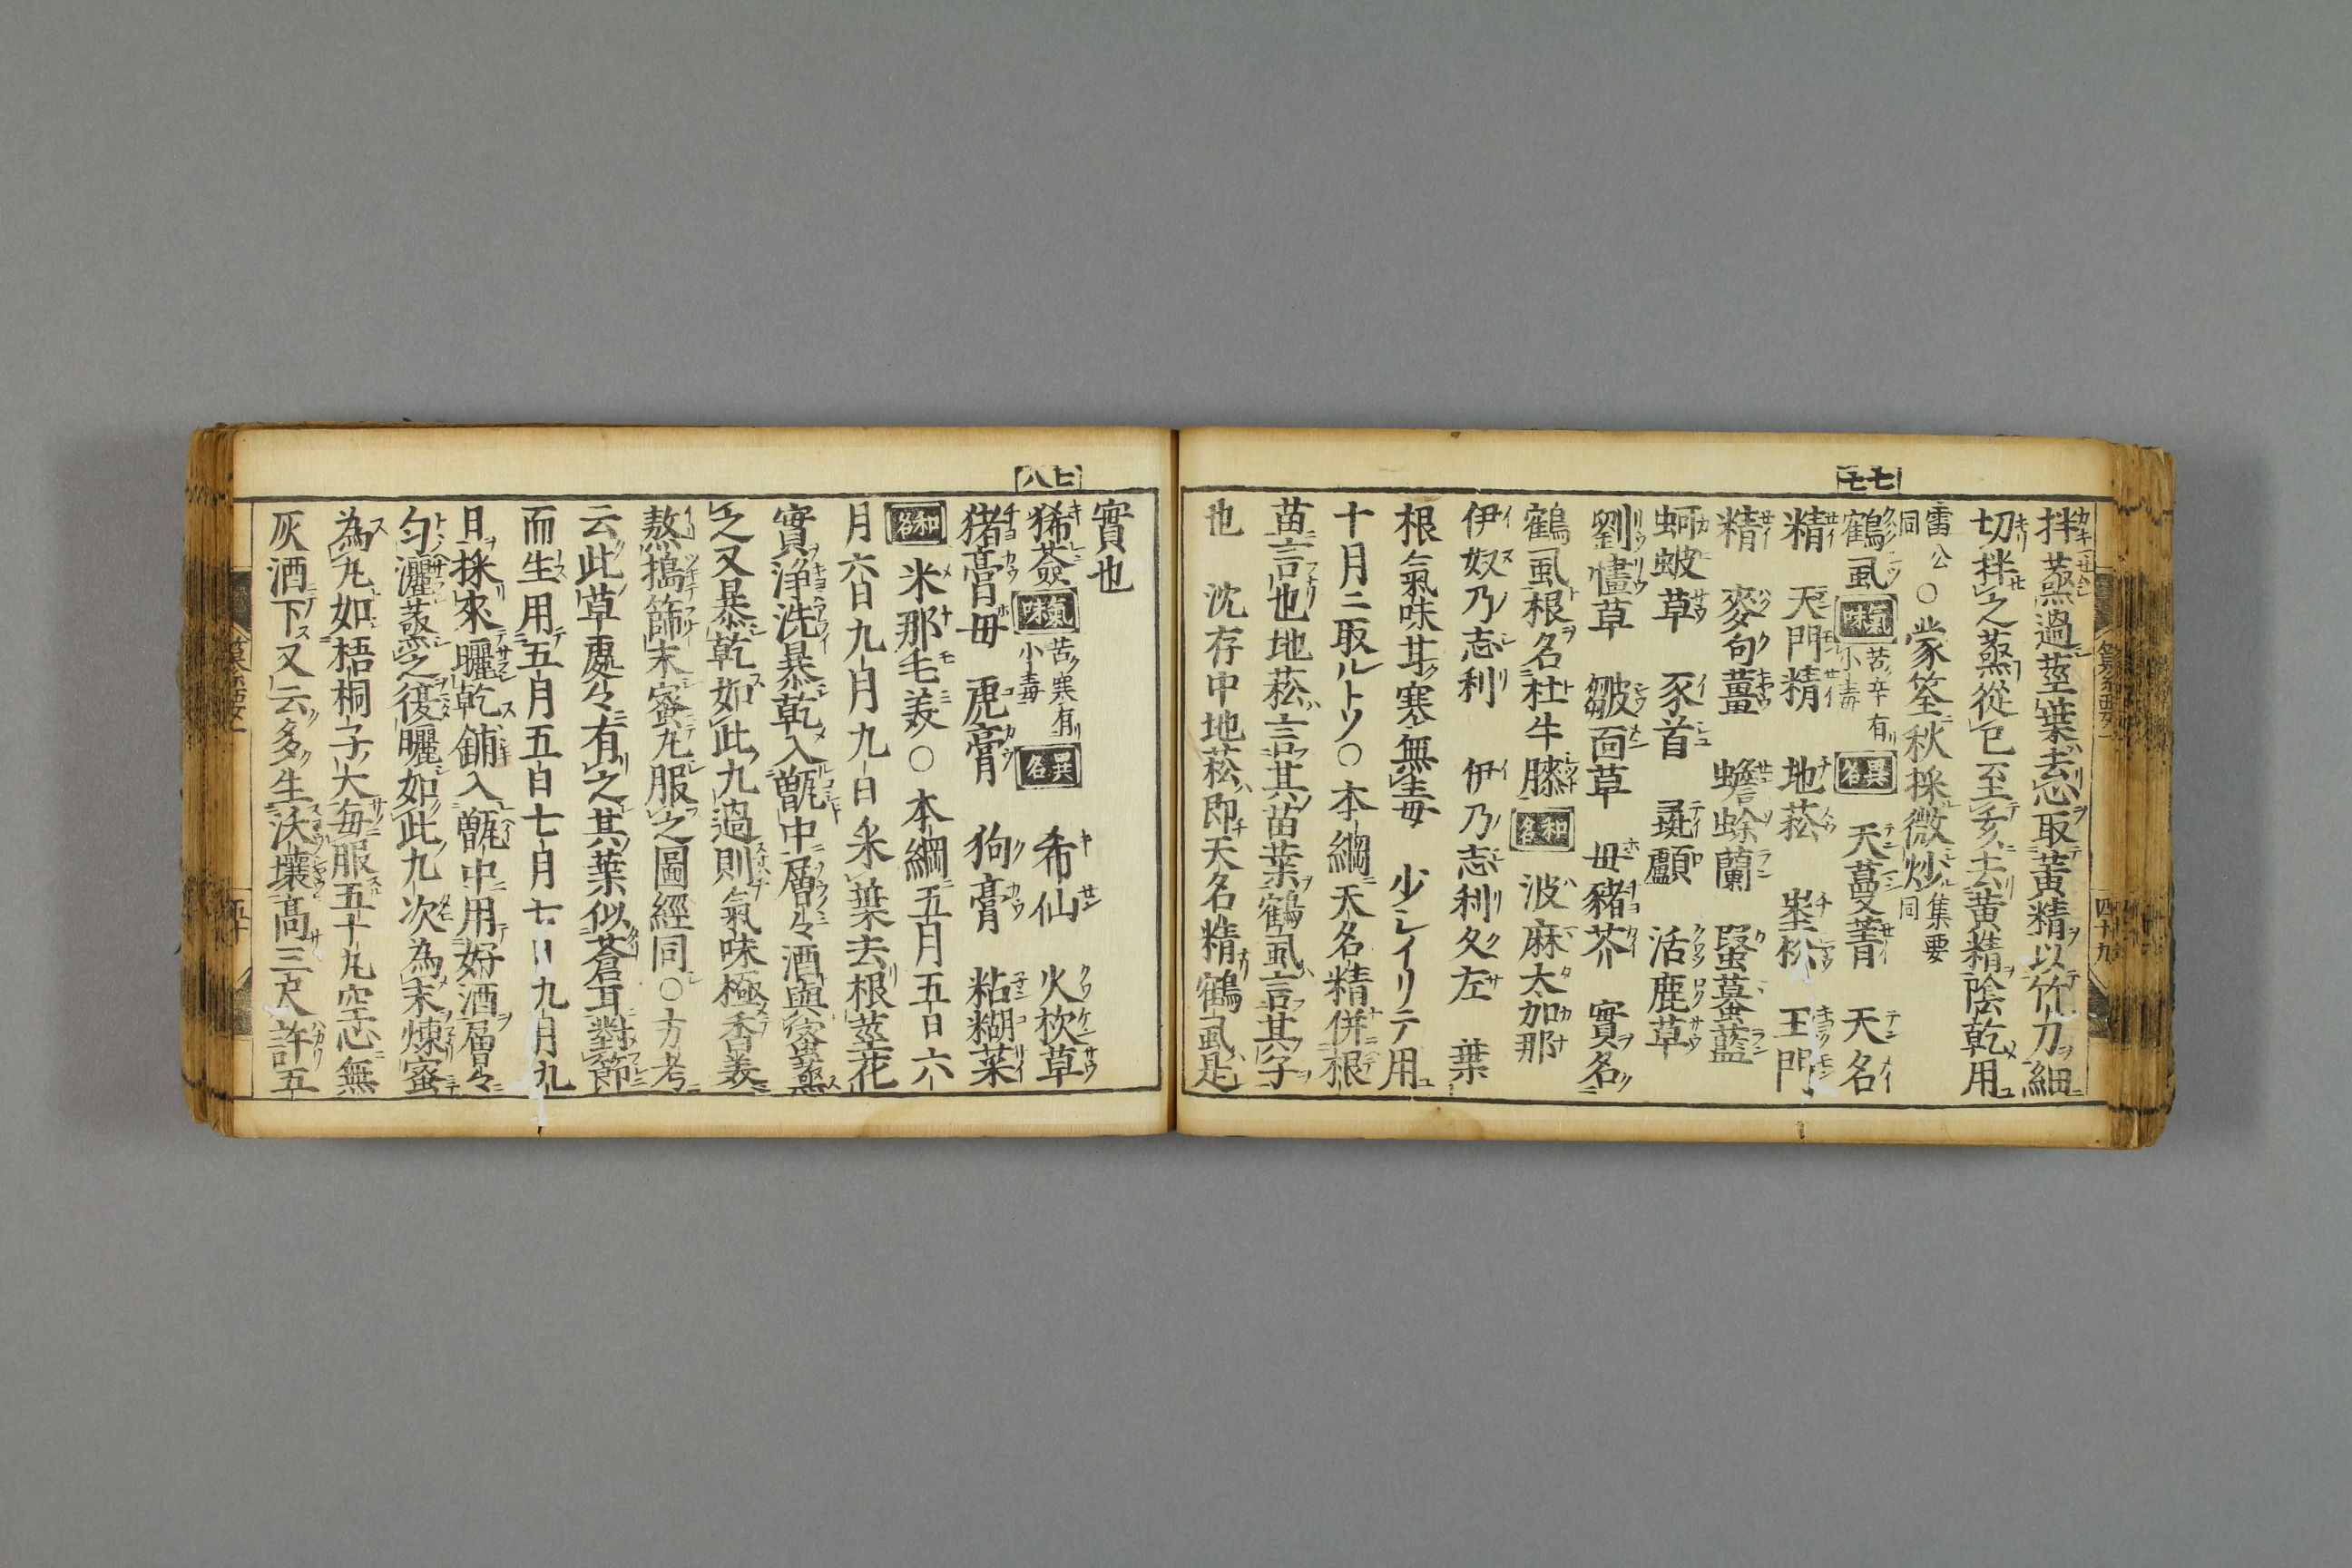 七七
拌蒸過莖葉去心取黃精以竹刀細
切拌之蒸從巳至亥去黃精陰乾用
雷公同○蒙筌秋採微炒集要同
鶴虱 氣味 苦辛有小毒 異名 天蔓菁 天名
精 天門精 地菘 埊松 玉門
精 麥句薑 蟾蜍蘭 蝦蟇藍
蚵蚾草 豕首 彘顱 活鹿草
劉㦎草 皺面草 母豬芥 實名
鶴虱根名杜牛膝 和名 波麻太加那
伊奴乃志利 伊乃志利久左 葉
根氣味甘寒無毒 少シイリテ用
十月ニ取ルトソ○本綱天名精併根
苗言也地菘言其苗葉鶴虱言其子
也 沈存中地菘即天名精鶴虱是
七八
實也
豨薟 氣味 苦寒有小毒 異名 希仙 火杴草
猪膏母 虎膏 狗膏 粘糊菜
和名 米那毛美○本綱五月五日六
月六日九月九日采葉去根莖花
實淨洗暴乾入甑中層々酒與蜜蒸
之又暴乾如此九過則氣味極香美
熬搗篩末蜜丸服之圖經同○方考
云此草處々有之其葉似蒼耳對節
而生用五月五日七月七日九月九
日採來曬乾鋪入甑中用好酒層々
匀灑蒸之復曬如此九次為末煉蜜
為丸如梧桐子大每服五十丸空心無
灰酒下又云多生沃壤高三尺許五
纂要一
四十九
五十